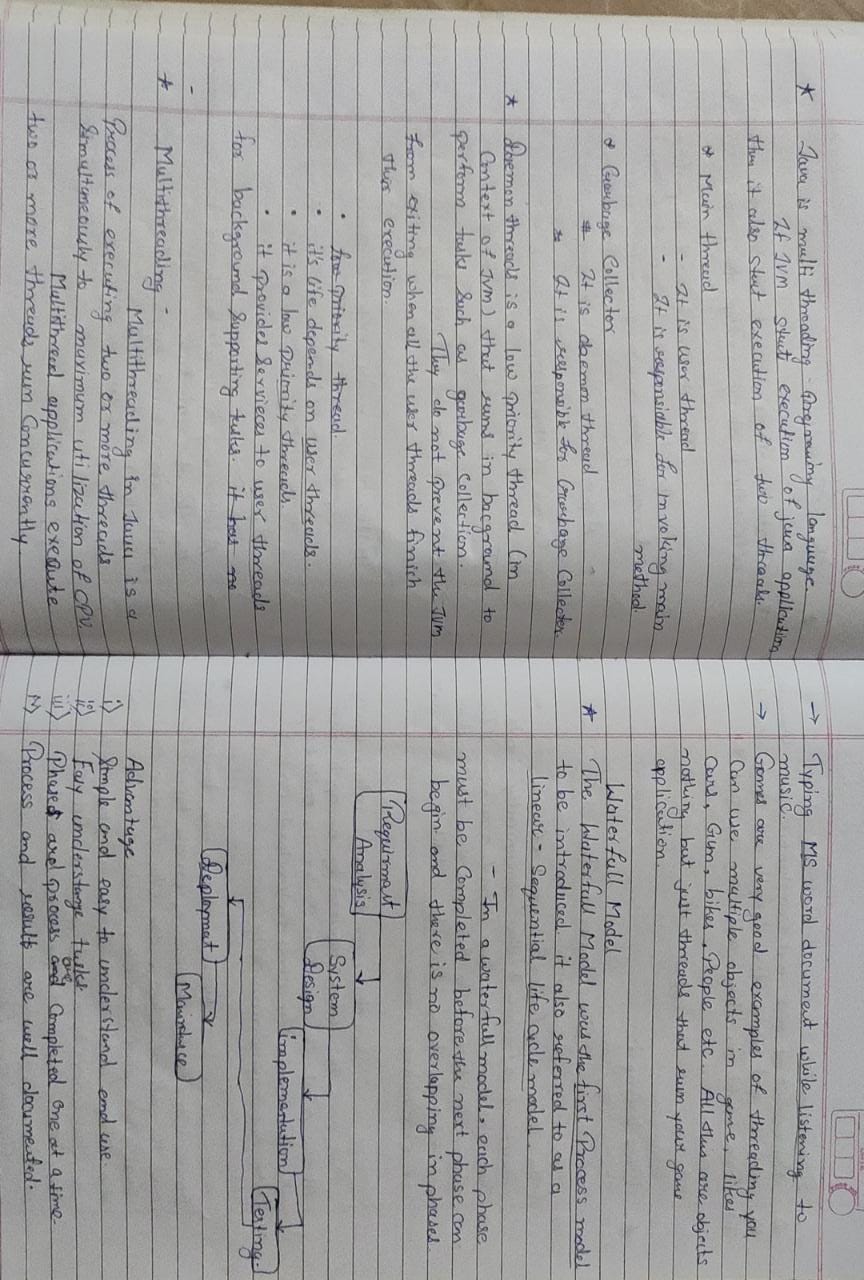 * Java is multi threading programing language.
If JVM start execution of java application
then it also start execution of two threads.
* Main thread
- It is user thread
- It is responsible for invoking main
method.
* Garbage Collector
* It is daemon thread
* It is responsible for Garbage Collector
* Daemon threads is a low priority thread (in
Context of JVM) that runs in bacground to
perform tasks such as garbage collection.
They do not prevent the JVM
from exiting when all the user threads finish
their execution.
• low priority thread.
• it's life depends on user threads.
• it is a low priority threads
• it provides services to user threads
for background supporting tasks. it has no
-
* Multithreading -
Multithreading in Java is a
Process of executing two or more threads
Simultaneously to maximum utilization of CPU.
Multithread applications execute
two or more threads run Concurrently
→ Typing MS word document while listening to
music.
→ Games are very good examples of threading you
Can use multiple objects in game, likes
cars, Gun, bikes, People etc. All this are objects
nothing but just threads that run your game
application.
Waterfall Model
* The Waterfall Model was the first Process model
to be introduced it also referred to as a
linear - Sequential life cycle model.
- In a waterfall model, each phase
must be completed before the next phase can
begin and there is no overlapping in phases.
Requirment
Analysis
System
design
implementation
Testing.
Deploymat
Maintace
Advantage
i) Simple and easy to understand and use
ii) Easy understange tasks
iii) Phases are process and Completed one at a time.
iv) Process and result are well documented.